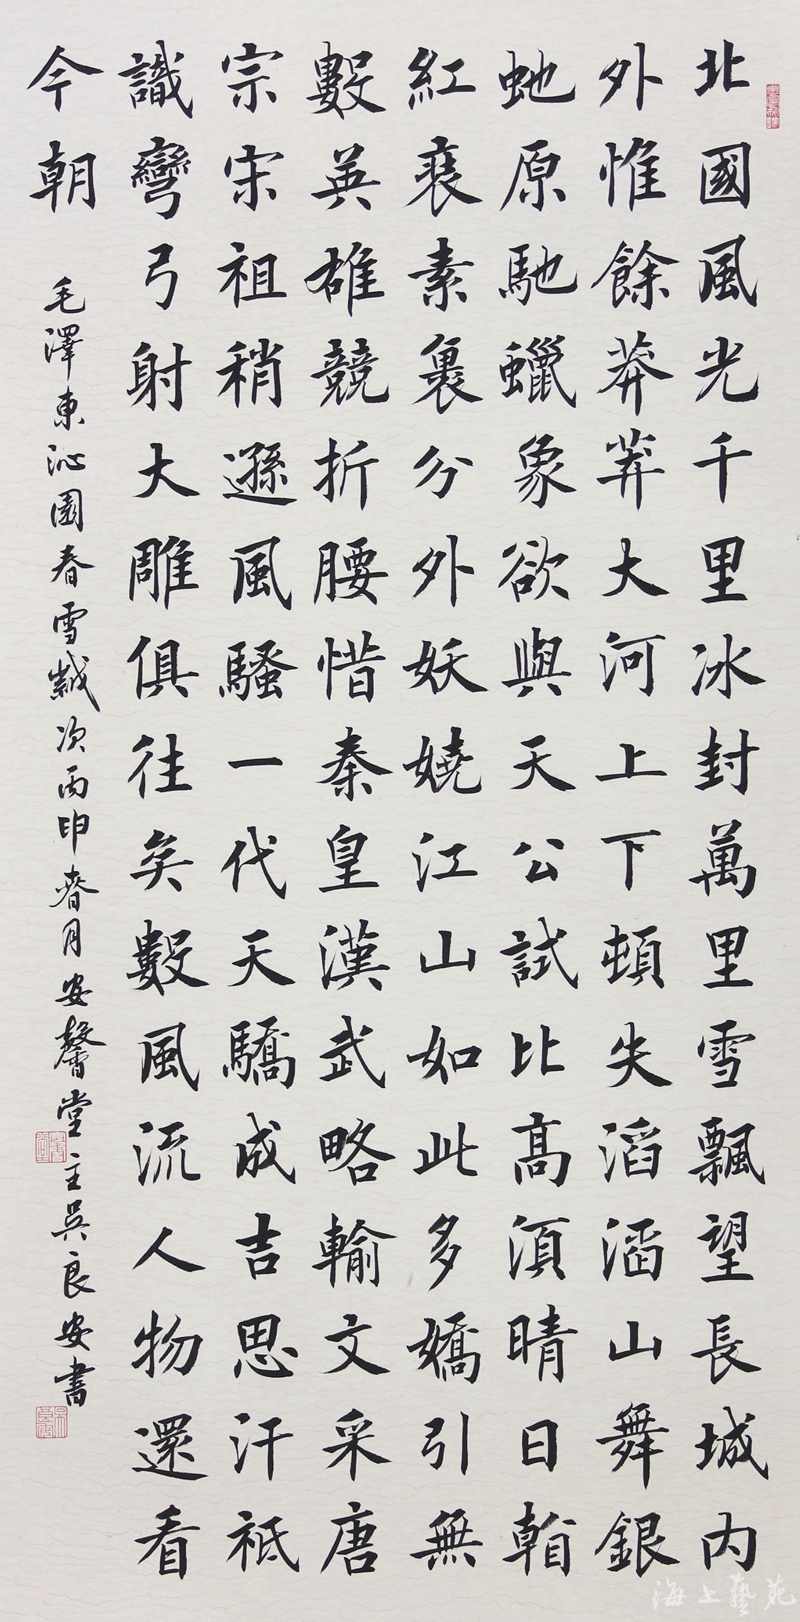 北國風光千里冰封萬里雪飄望長城内
外惟餘莽莽大河上下頓失滔滔山舞銀
虵原馳蠟象欲與天公試比高須晴日
紅裝素裹分外妖嬈江山如此多嬌引無
數英雄競折腰惜秦皇漢武略輸文采唐
宗宋祖稍遜風騷一代天驕成吉思汗祗
識彎弓射大雕俱往矣數風流人物還看
今朝
毛澤東沁園春雪歲次丙申春月安馨堂主吳良安書
海上藝苑